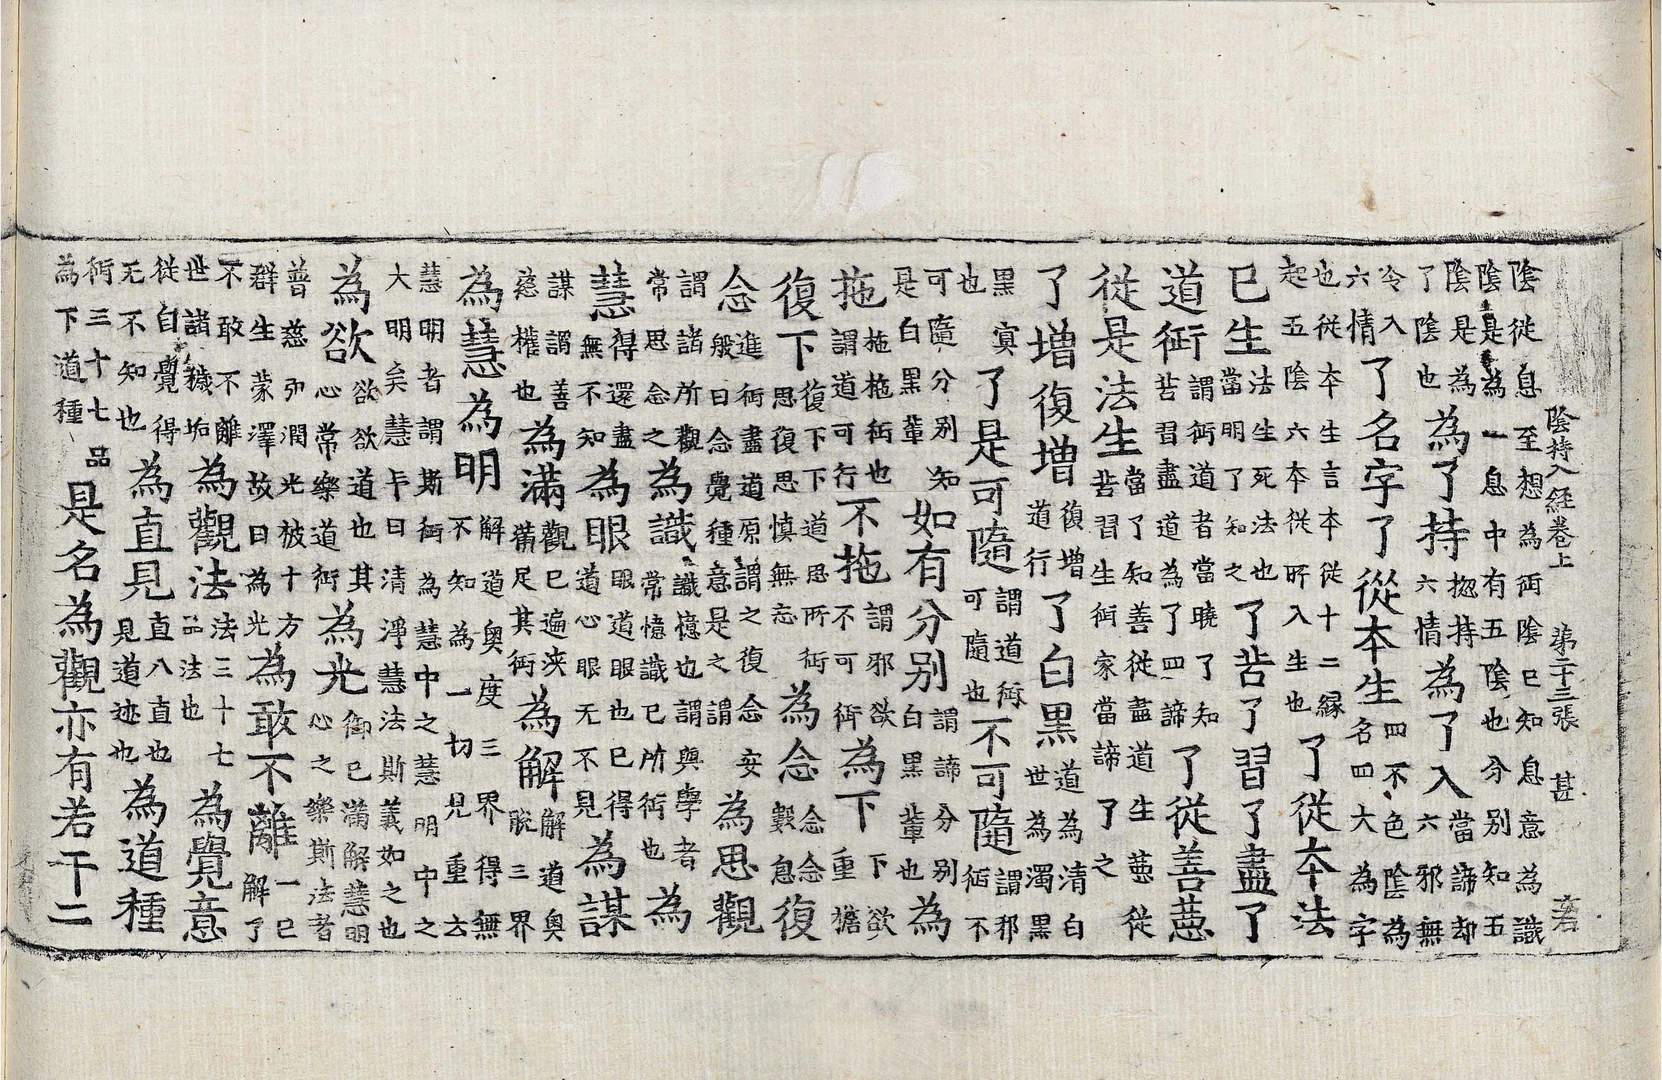 陰持入經卷上 第二十三張 甚
陰從息至想為兩陰已知息意為識
陰是為一息中有五陰也分別知五
陰是為了陰也為了持惣持六情為了入當諦却六邪無
令入六情了名字了從本生四不色陰為名四大為字
也從本生言本從十二縁起五陰六本從所入生也了從本法
已生法生生死法也當明了知之了苦了習了盡了
道術謂術道者當曉了知苦習盡道為了四諦了從善惡
從是法生當了知善從盡道生惡從苦習生術家當諦了之
了增復增復增道行了白黑道為清白世為濁黑
黑冥也了是可隨謂道術可隨也不可隨謂邪術不
可隨分别知是白黑輩如有分别謂諦分别白黑輩也為
拖拖拖術也謂道可行不拖謂邪欲不可術為下下欲重擔
復下復下下道思所術思復思慎無忘為念念念數息復
念進術盡道原謂之復念安般曰念覺種意是之謂為思觀
謂諸所觀常思念之為識識憶也謂與學者常憶識已所術也為
慧得還盡無不知為眼眼道眼也已得道心眼无不見為謀
謀謂善慈權也為滿觀已遍浹滿足其術為解解道奥脫三界
為慧為明解道奥度三界得無不知為一切見重去
慧明者謂斯術為慧中之慧明中之大明矣慧卞曰清淨慧法斯義如之也
為欲欲欲道也其心常樂道術為光御已滿解慧明心之樂斯法者
普慈弘潤光被十方群生蒙澤故曰為光為敢不離一已解了
不敢不離世諸穢垢為觀法法三十七品法也為覺意
從自覺得无不知也為直見直八直也見道迹也為道種
術三十七品為下道種是名為觀亦有若干二